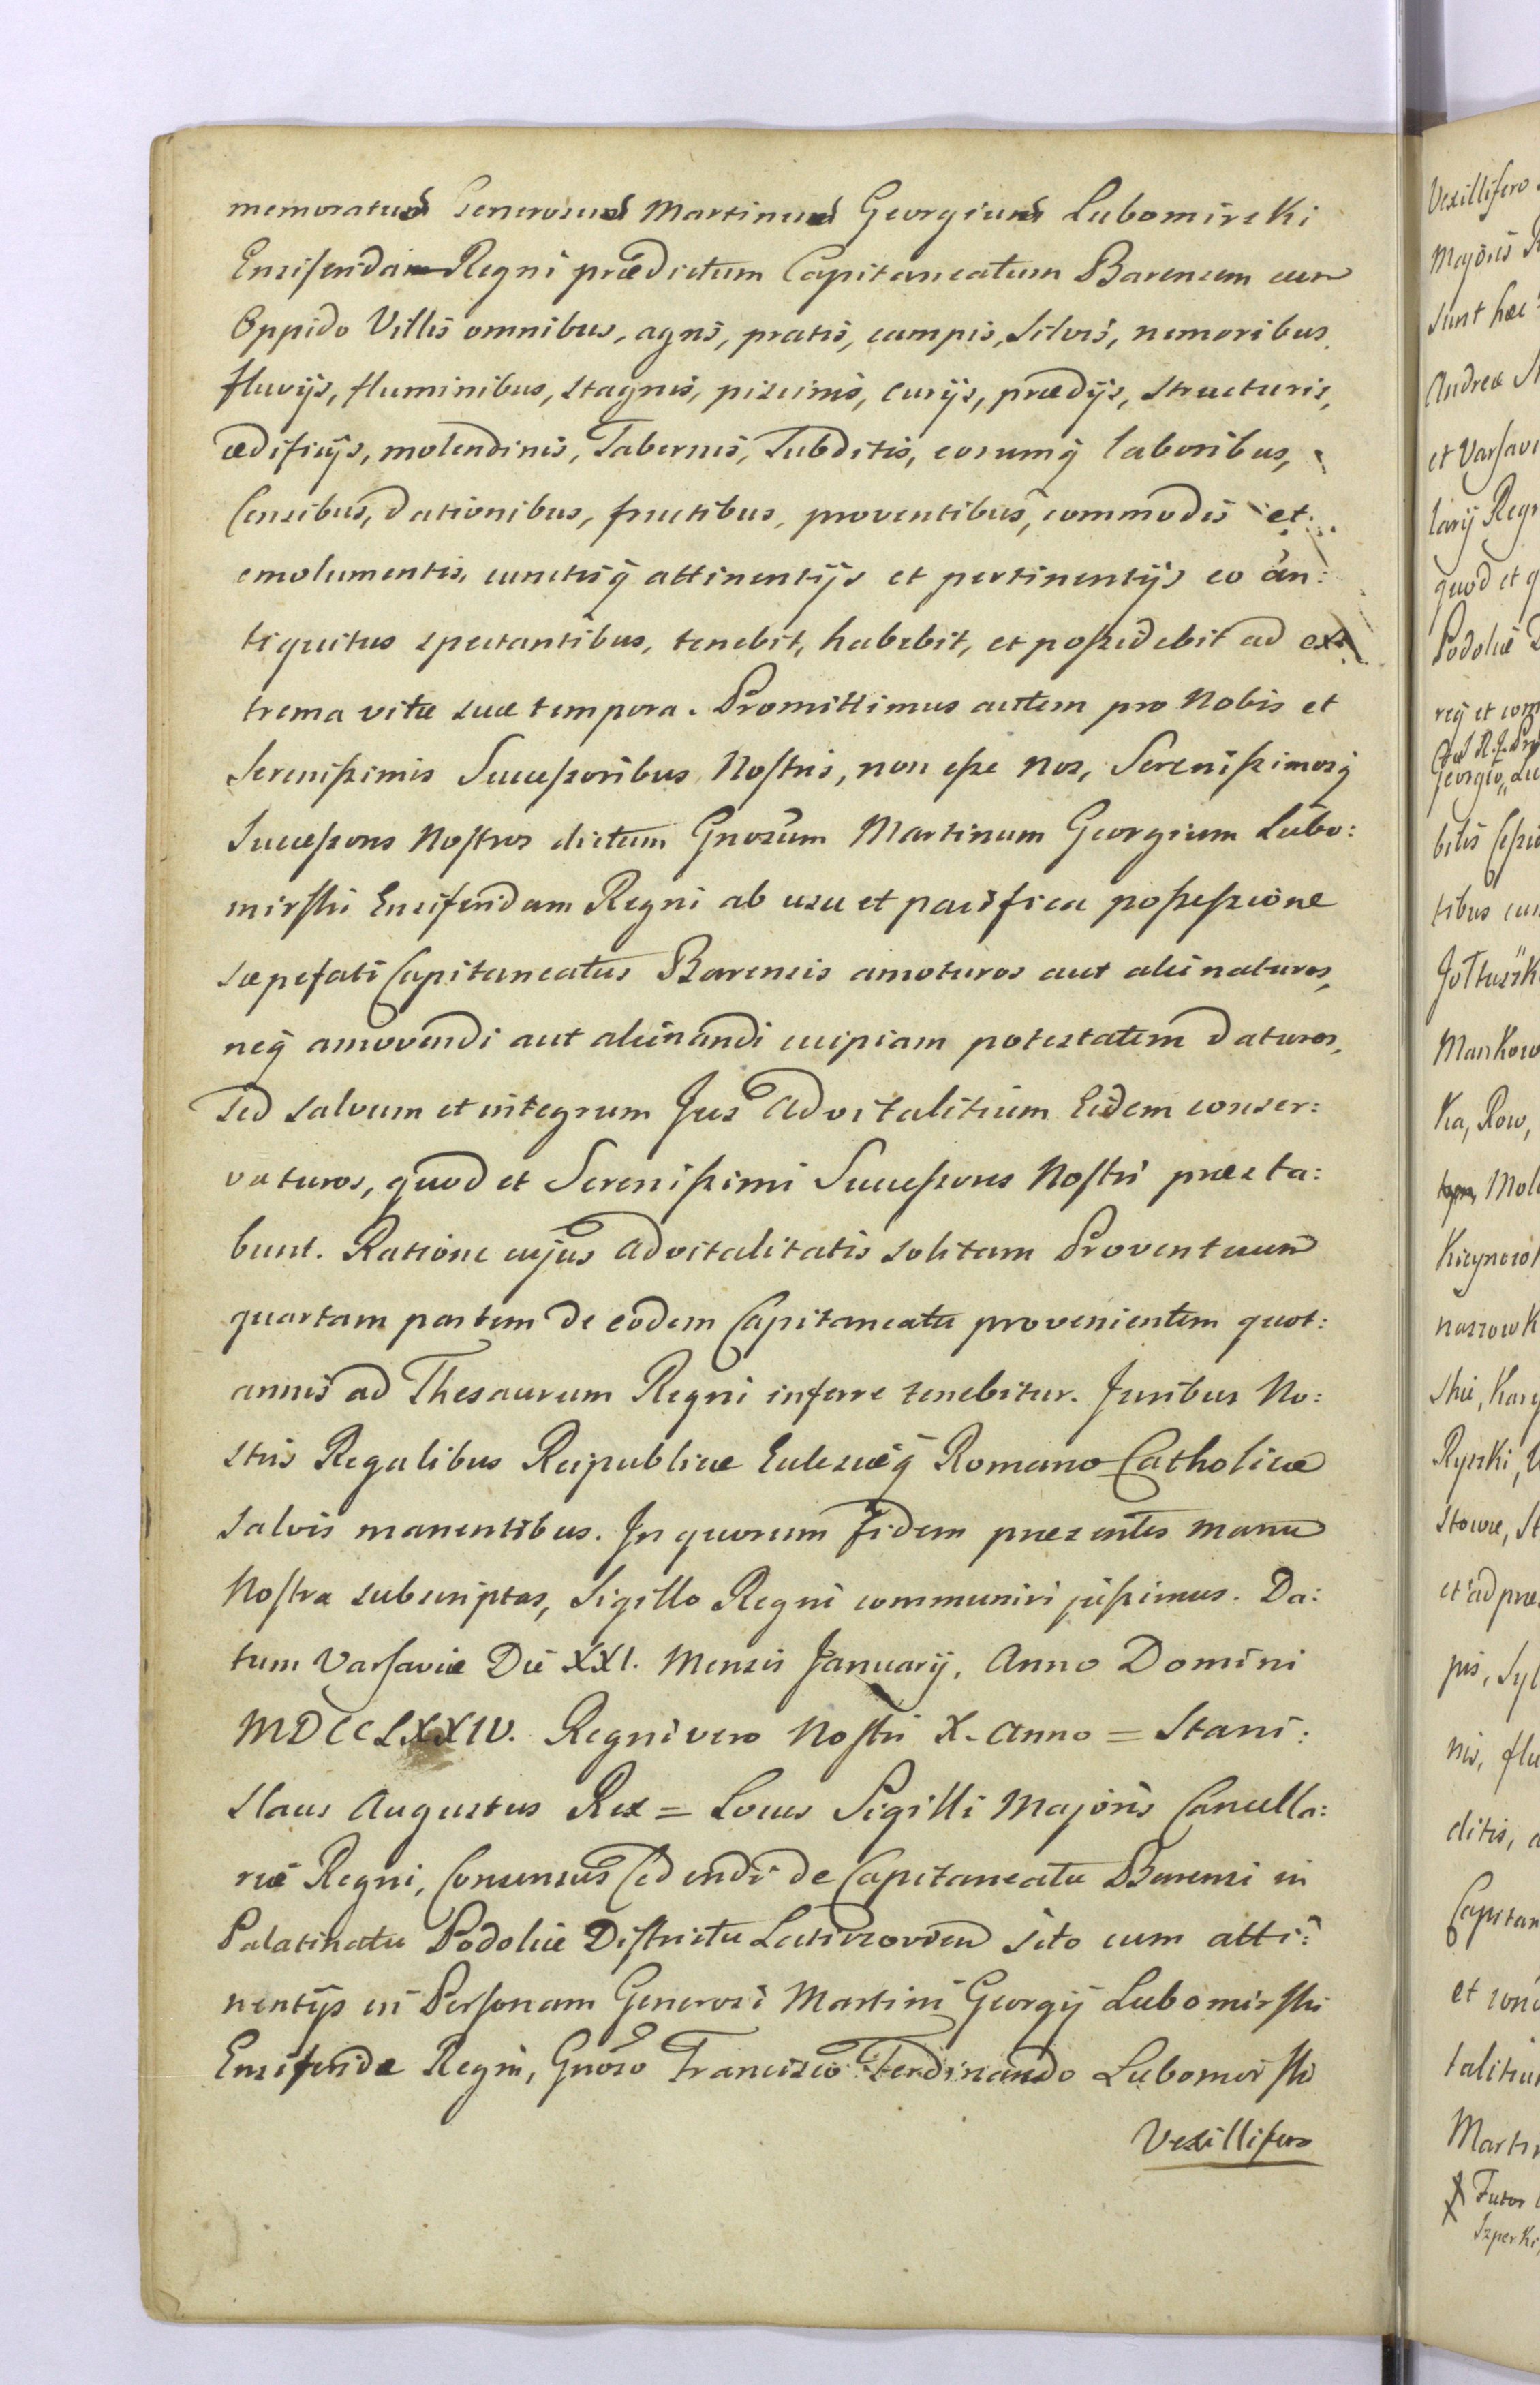 memoratus Generosus Martinus Georgius Lubomirski
Ensiferida Regni prædictum Capitaneatum Barensem cum
Oppido Villis omnibus, agris, pratis, campis, Silvis, nemoribus,
fluvijs, fluminibus, stagnis, piscinis, curijs, prædijs, structuris,
ædificijs, molendinis, Tabernis, Subditis, eorumq laboribus,
Censibus, dationibus, fructibus, proventibus, commodis et
emolumentis, cunctisq attinentijs et pertinentijs eo an:
tiquitus spectantibus, tenebit, habebit, et possidebit ad ex:
trema vitæ suæ tempora. Promittimus autem pro Nobis et
Serenissimis Successoribus Nostris, non esse Nos, Serenissimosq
Successores Nostros dictum Gnosum Martinum Georgium Lubo:
mirski Ensiferidam Regni ab usu et pacifica possessione
sæpefati Capitaneatus Barensis amoturos aut alienaturos,
neq amovendi aut alienandi cuipiam potestatem daturos,
sed salvum et integrum Jus Advitalitium Eidem conser:
vaturos, quod et Serenissimi Successores Nostri præsta:
bunt. Ratione cujus Advitalitatis solitam Proventuum
quartam partem de eodem Capitaneatu provenientem quot:
annis ad Thesaurum Regni inferre tenebitur. Juribus No:
stris Regalibus Reipublicæ Eclesiæq Romano Catholicæ
salvis manentibus. In quorum fidem præsentes manu
Nostra subscriptas, Sigillo Regni communiri jussimus. Da:
tum Varsaviæ Die XXI. Mensis Januarij, Anno Domini
MDCCLXXIV. Regni vero Nostri X. Anno = Stani:
slaus Augustus Rex = Locus Sigilli Majoris Cancella:
riæ Regni, Consensus Cedendi de Capitaneatu Barensi in
Palatinatu Podoliæ Districtu Laticzovien sito cum atti:
nentijs in Personam Generosi Martini Georgij Lubomirski
Ensiferidæ Regni, Gnoso Francisco Ferdinando Lubomirski
Vexillifero
Vexillifero
Majoris
sunt hæc
Andreæ
et Varsavi
larij Regn
quod et q
Podoliæ
rej et com
Georgio
bilis
tibus cum
Jołtuszk
Mankow
ka, Row,
Mol
Kicynczo
naszowk
skie, Kary
Ryszki,
stowe, St
et ad præ
pis, Syl
nis, flu
ditis, a
Capitan
et
talitium
Martin
Futor
Szperki,